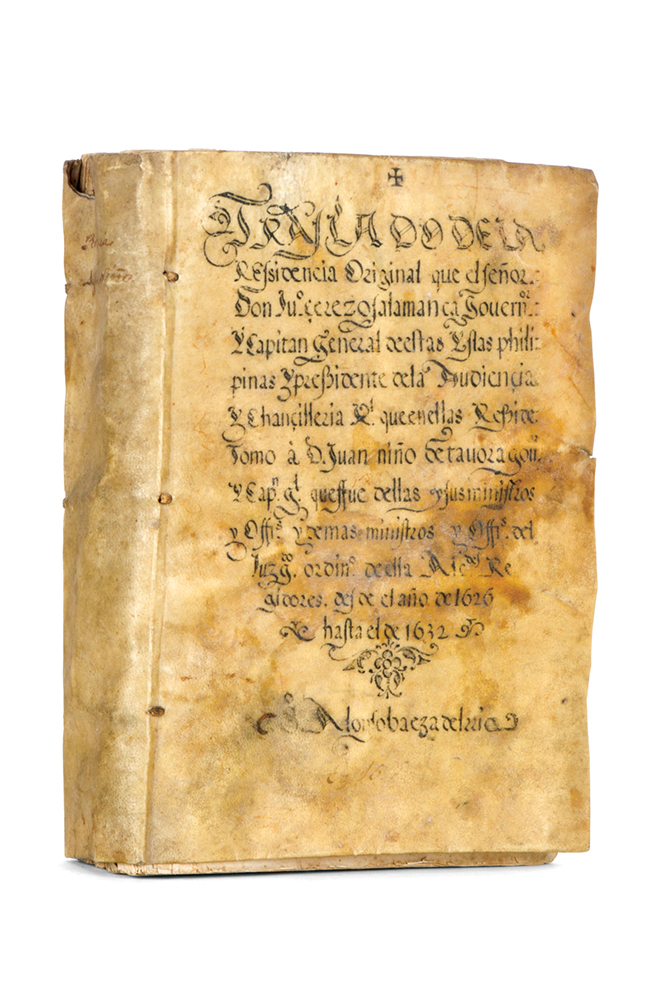 TRASLADO DE LA
REssidencia Original que el señor
Don Juº. çerezo salamanca Gouernºʳ.
Y Capitan General de estas Yslas phili-
pinas Y pressidente de la Audiencia
Y Chançilleria Rˡ. que en ellas Reside
Tomo à D. Juan niño de tauora gouºʳ.
Y Capⁿ. gˡ. que ffue dellas y sus ministros
y Offiˢ. y demas ministros y Offiˢ. del
Juzgº. ordinº. de ella Alcᵈᵉˢ Re
gidores. desde el año de 1626
hasta el de 1632
Sº. Alonso baeza del rio